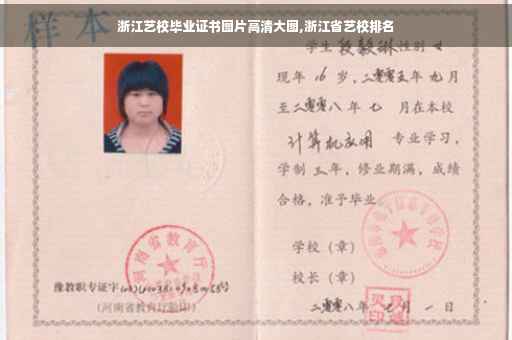 浙江艺校毕业证书图片高清大图,浙江省艺校排名
样本
学生 段毅琳 性别 女
现年 16 岁，二零零五年 九月
至二零零八年 七 月在本校
计算机应用 专业学习，
学制 三 年，修业期满，成绩
合格，准予毕业
学校（章）
校长（章）
二零零八年 七 月 一 日
河南省教育厅
豫教职专证字
(河南省教育厅验印)